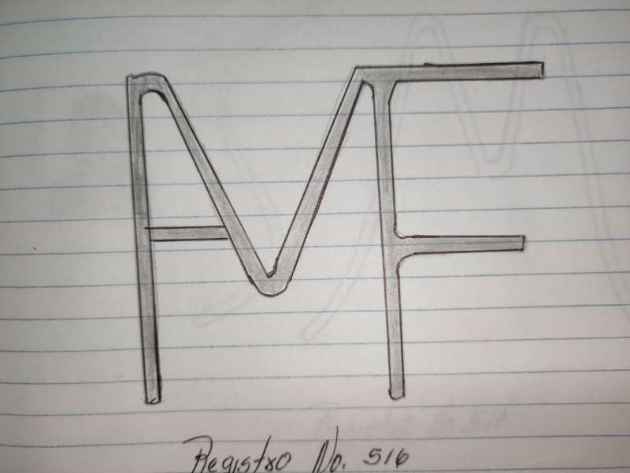 AMF
Registro No. 516